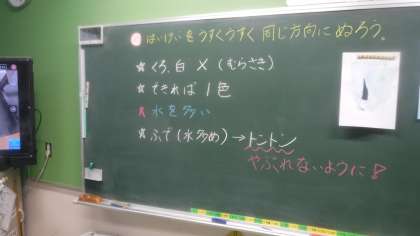 はいけいをうすくうすく同じ方向にぬろう。
☆くろ、白 × (むらさき)
☆できれば1色
☆水を多い
☆ふで(水多め)→トントン
やぶれないように!